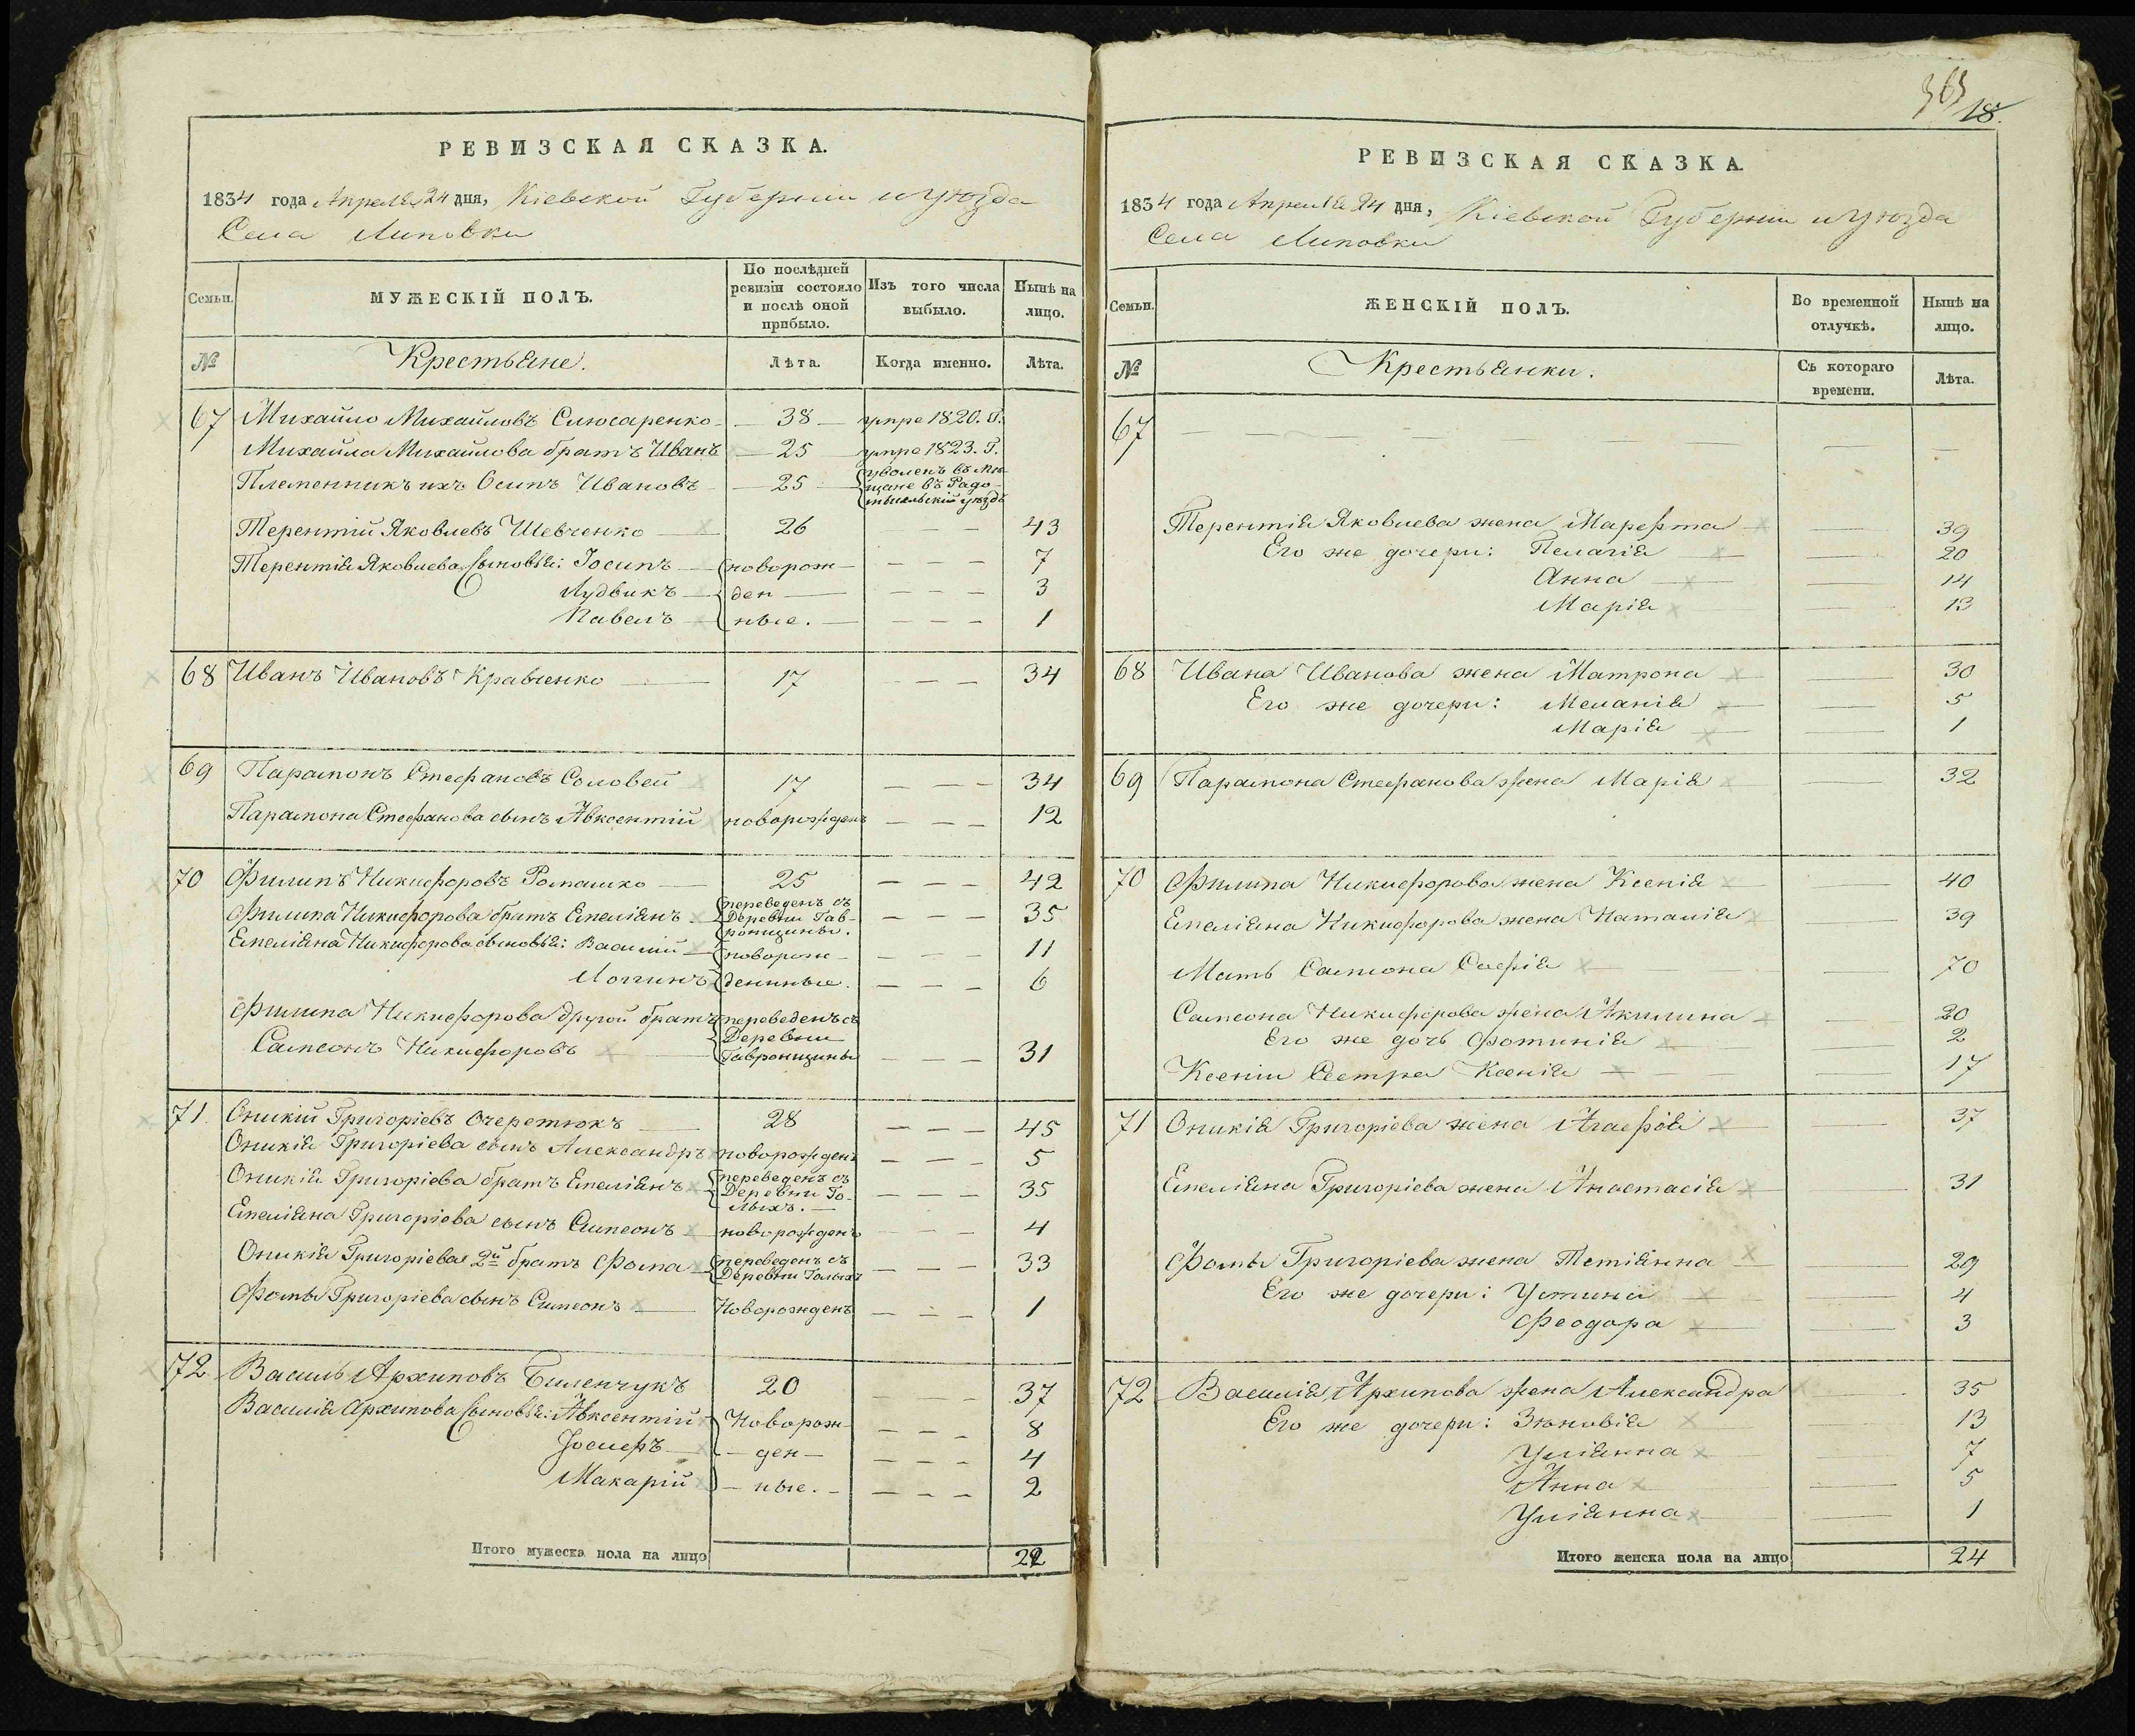 РЕВИЗСКАЯ СКАЗКА.
1834 года Апреля 24 дня, Кіевской Губерніи и уѣзда
Села Липовки
Семьи.
МУЖЕСКІЙ ПОЛЪ.
По послѣдней ревизіи состояло и послѣ оной прибыло.
Изъ того числа выбыло.
Нынѣ на лицо.
№ Крестьяне. Лѣта. Когда именно. Лѣта.
67 Михайло Михайловъ Слюсаренко 38 умре 1820. Г.
Михайла Михайлова братъ Иванъ 25 умре 1823. Г.
Племенникъ ихъ Осипъ Ивановъ 25 уволенъ въ Мѣ-
щане въ Радо-
мысльскій уѣздъ
Терентій Яковлевъ Шевченко 26 43
Терентія Яковлева сыновья: Іосипъ новорож- 7
Лудвикъ ден 3
Павелъ ные. 1
68 Иванъ Ивановъ Кравченко 17 34
69 Парамонъ Стефановъ Соловей 17 34
Парамона Стефанова сынъ Авксентій новорожденъ 12
70 Филипъ Никифоровъ Ромашко 25 42
Филипа Никифорова братъ Емеліянъ переведенъ съ Деревни Гав-
ронщины. 35
Емеліяна Никифорова сыновья: Василій новорож- 11
Логинъ денные. 6
Филипа Никифорова другой братъ переведенъ съ
Деревни
Самсонъ Никифоровъ Гавронщины 31
71. Оникій Григоріевъ Очеретюкъ 28 45
Оникія Григоріева сынъ Александръ новорожденъ 5
Оникія Григоріева братъ Емеліянъ переведенъ съ Деревни Го-
лыхъ. 35
Емеліяна Григоріева сынъ Симеонъ новорожденъ 4
Оникія Григоріева 2й братъ Фома переведенъ съ Деревни Голыхъ 33
Фомы Григоріева сынъ Симеонъ Новорожденъ 1
72 Василь Архиповъ Биленчукъ 20 37
Василія Архипова сыновья: Авксентій Новорож- 8
Іосифъ ден 4
Макарій ные. 2
Итого мужеска пола на лицо 22
18.
РЕВИЗСКАЯ СКАЗКА.
1834 года Апреля 24 дня, Кіевской Губерніи и уѣзда
Села Липовки
Семьи.
ЖЕНСКІЙ ПОЛЪ.
Во временной отлучкѣ.
Нынѣ на лицо.
№ Крестьянки. Съ котораго времени. Лѣта.
67
Терентія Яковлева жена Марефта 39
Его же дочери: Пелагія 20
Анна 14
Марія 13
68 Ивана Иванова жена Матрона 30
Его же дочери: Меланія 5
Марія 1
69 Парамона Стефанова жена Марія 32
70 Филипа Никифорова жена Ксенія 40
Емеліяна Никифорова жена Наталія 39
Мать Самсона Софія 70
Самсона Никифорова жена Акилина 20
Его же дочь Фотинія 2
Ксеніи Сестра Ксенія 17
71 Оникія Григоріева жена Агафія 37
Емеліяна Григоріева жена Анастасія 31
Фомы Григоріева жена Тетіянна 29
Его же дочери: Устина 4
Феодора 3
72 Василія Архипова жена Александра 35
Его же дочери: Зѣновія 13
Уліянна 7
Анна 5
Уліянна 1
Итого женска пола на лицо 24